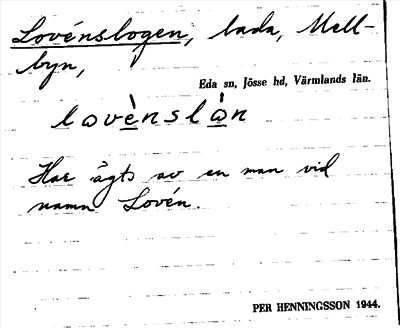 Lovénslogen, lada, Mell-
byn,
Eda sn, Jösse hd, Värmlands län.
lovènslån
Har ägts av en man vid
namn Lovén.
PER HENNINGSSON 1944.